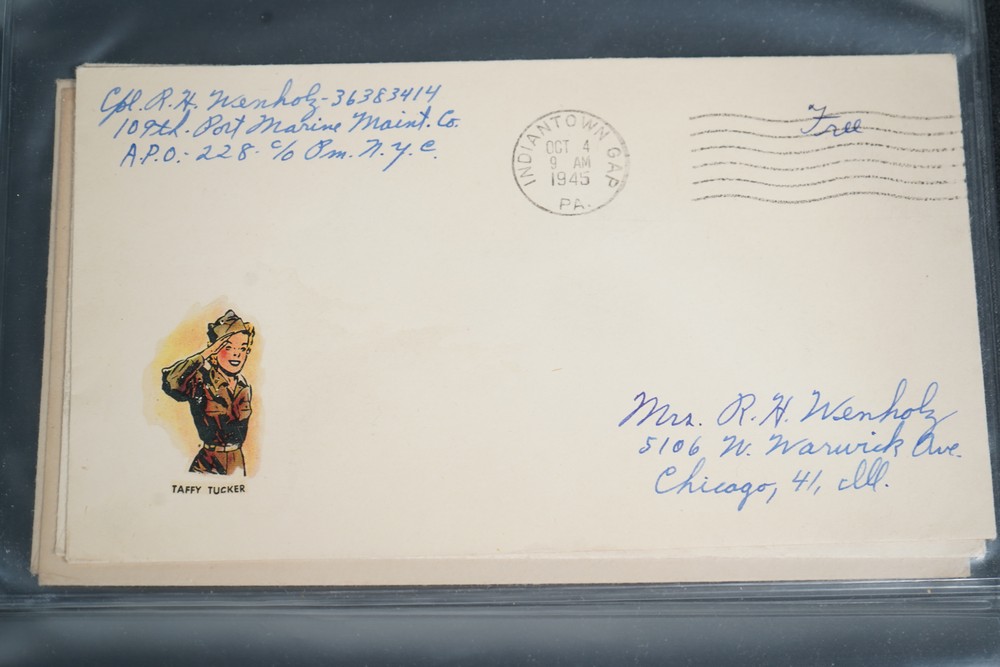 Cpl. R. H. Wenholz-36383414
109th. Port Marine Maint. Co.
A.P.O.- 228- c/o Pm. N.Y.C.
INDIANTOWN GAP
OCT 4
9 AM
1945
PA.
Free
TAFFY TUCKER
Mrs. R. H. Wenholz
5106 W. Warwick Ave.
Chicago, 41, Ill.